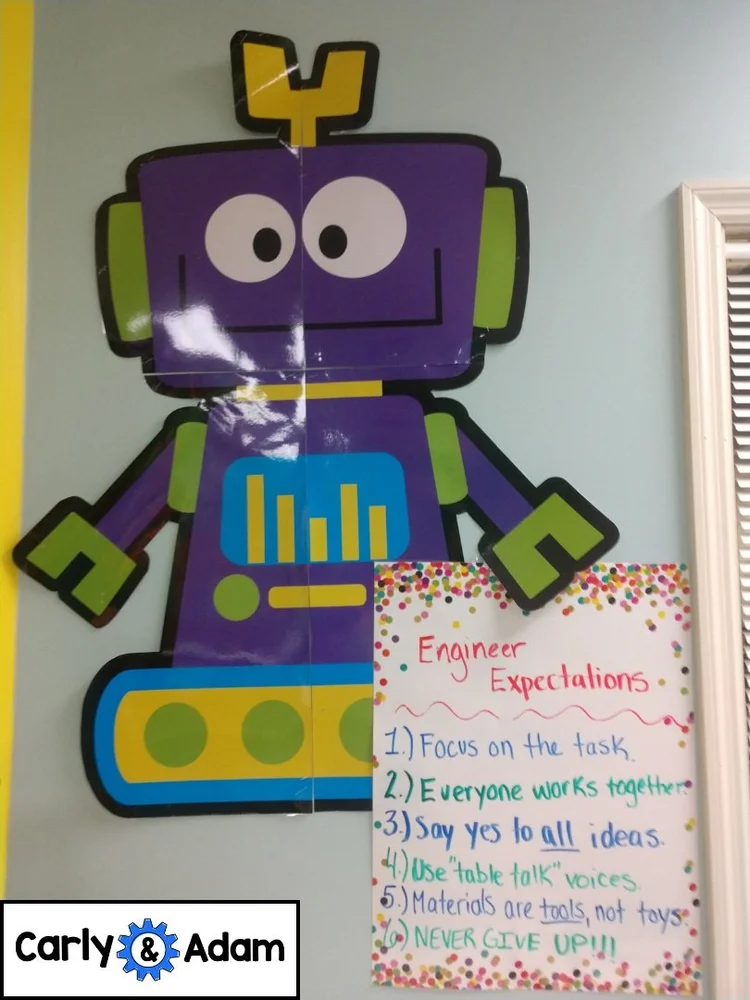 Engineer
Expectations
1.) Focus on the task.
2.) Everyone works together.
3.) Say yes to all ideas.
4.) Use "table talk" voices.
5.) Materials are tools, not toys.
6) NEVER GIVE UP!!!
Carly & Adam